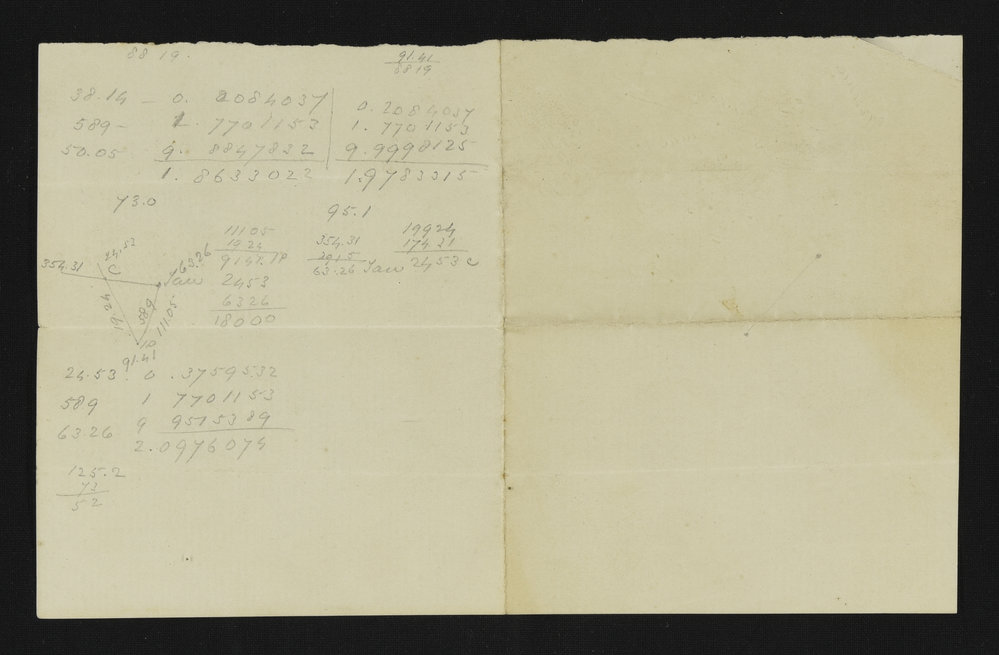 88 19.
91.41
88 19
38.14 — 0. 2084037
589 — 1. 7701153
50.05 9. 8847832
1. 8633022
0. 2084037
1. 7701153
9. 9998125
1.9783315
73.0
95.1
24.52
354.31
C
63.26
Jaw
19.24
589
111.05
10
91.41
111 05
19 24
91.41. 10
2453
6326
18000
354.31
291 5
63.26 Jaw
199 24
174 31
24 53 c
24.53. 0 .3759532
589 1 7701153
63.26 9 9515389
2.0976074
125.2
73
52